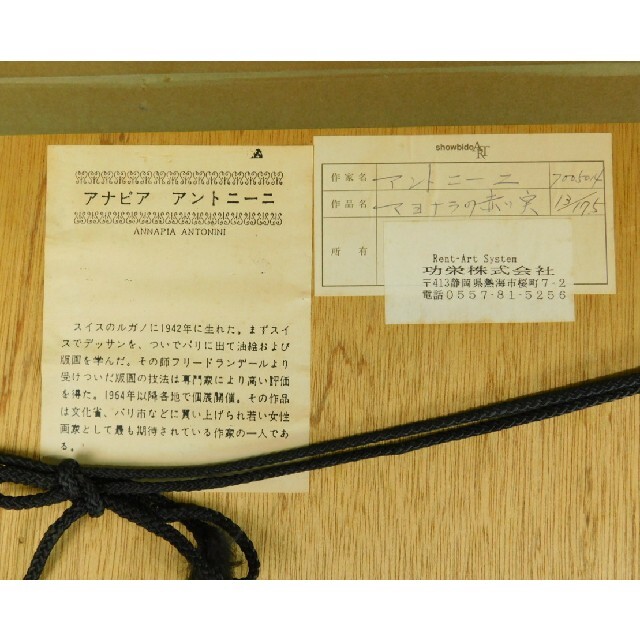 アナピア アントニーニ
ANNAPIA ANTONINI
スイスのルガノに1942年に生れた。まずスイ
スでデッサンを、ついでパリに出て油絵および
版画を学んだ。その師フリードランデールより
受けついだ版画の技法は専門家により高い評価
を得た。1964年以降各地で個展開催。その作品
は文化省、パリ市などに買い上げられ若い女性
画家として最も期待されている作家の一人であ
る。
showbido ART
作家名 アントニーニ
作品名 マヨナラの赤い実 13/175
所有
Rent-Art System
功栄株式会社
〒413静岡県熱海市桜町7-2
電話0557-81-5256